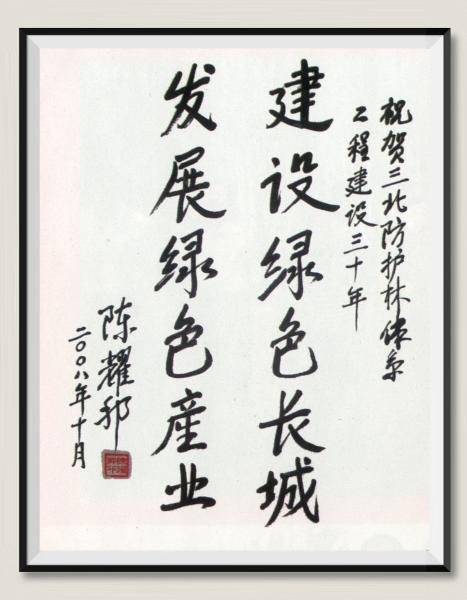 祝贺三北防护林体系
工程建设三十年
建设绿色长城
发展绿色產业
陈耀邦
二〇〇八年十月